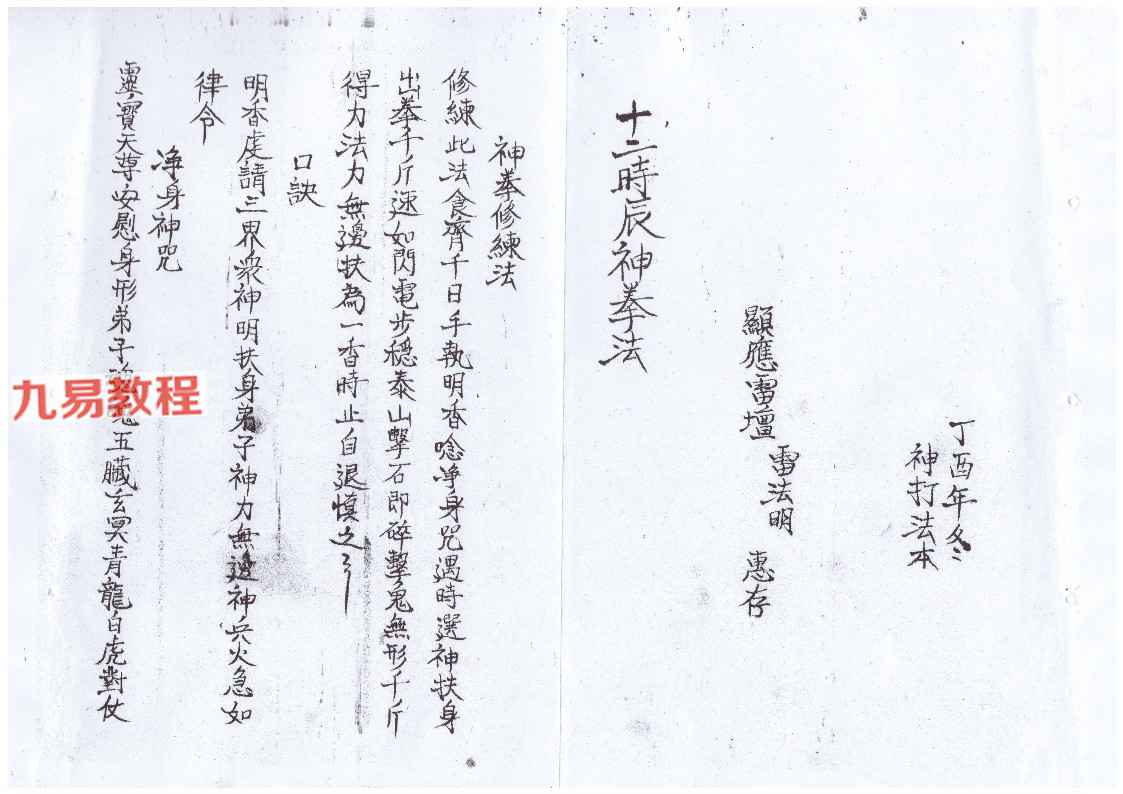 丁酉年冬
神打法本
顯應雷壇 雷法明 惠存
十二時辰神拳法
神拳修練法
修練此法食齊千日手執明香唸净身咒遇時選神扶身
出拳千斤速如閃電步穩泰山擊石即碎擊鬼無形千斤
得力法力無邊扶為一香時止自退慎之
口訣
明香虔請三界衆神明扶身弟子神力無邊神兵火急如
律令
净身神咒
靈寶天尊安慰身形弟子魂五臟玄冥青龍白虎對仗
九易教程